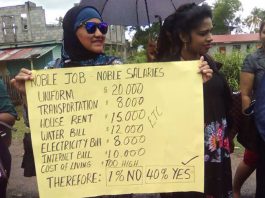 NOBLE JOB - NOBLE SALARIES
UNIFORM $ 20,000
TRANSPORTATION $ 8000
HOUSE RENT $ 15,000
WATER BILL $ 12,000
ELECTRICITY BILL $ 8000
INTERNET BILL $ 10,000
COST OF LIVING TOO HIGH
ETC
THEREFORE: 1% NO, 40% YES